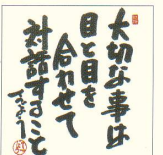 大切な事は
目と目を
合わせて
対話すること